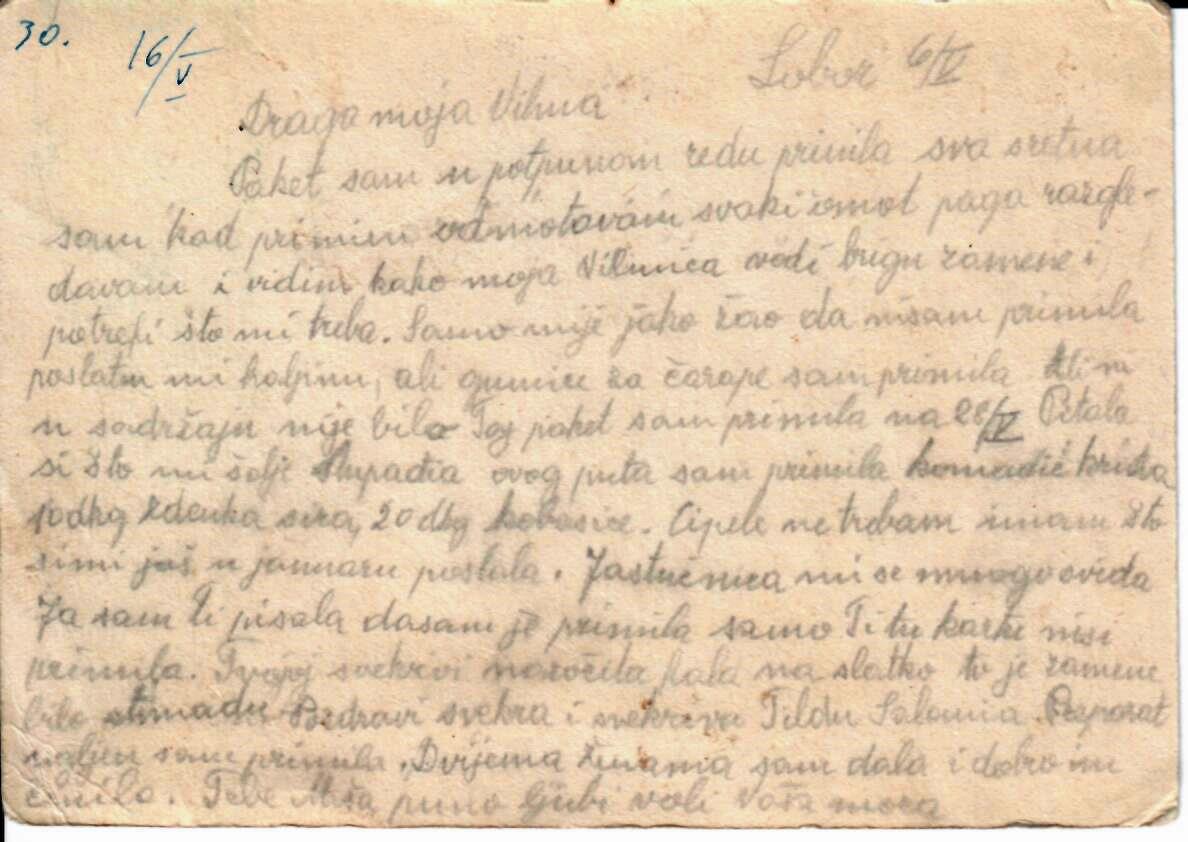 30.
16/V
Lobor 6/V
Draga moja Vilma
Paket sam u potpunom redu primila sva sretna
sam kad primim odmotavam svaki omot paga razgle-
davam i vidim kako moja Vilmica vodi brigu zamene i
potrefi što mi treba. Samo mije jako žao da nisam primila
poslatu mi haljinu, ali gumice za čarape sam primila
u sadržaju nije bilo Taj paket sam primila na 28/IV Pitala
si što mi šalje ovog puta sam primila komadić kruva
10dkg zdenka sira, 20 dkg kobasice. Cipele ne trebam imam što
simi još u januaru poslala. Jastučnica mi se mnogo sviđa
Ja sam Ti pisala dasam je primila samo Ti tu kartu nisi
primila. Tvojoj svekrvi naročita hala na slatko to je zamene
bilo Pozdravi svekra i svekrvu Tildu
sam primila. Dvijema ženama sam dala i dobro im
činilo. Tebe Miša puno ljubi voli Vaša